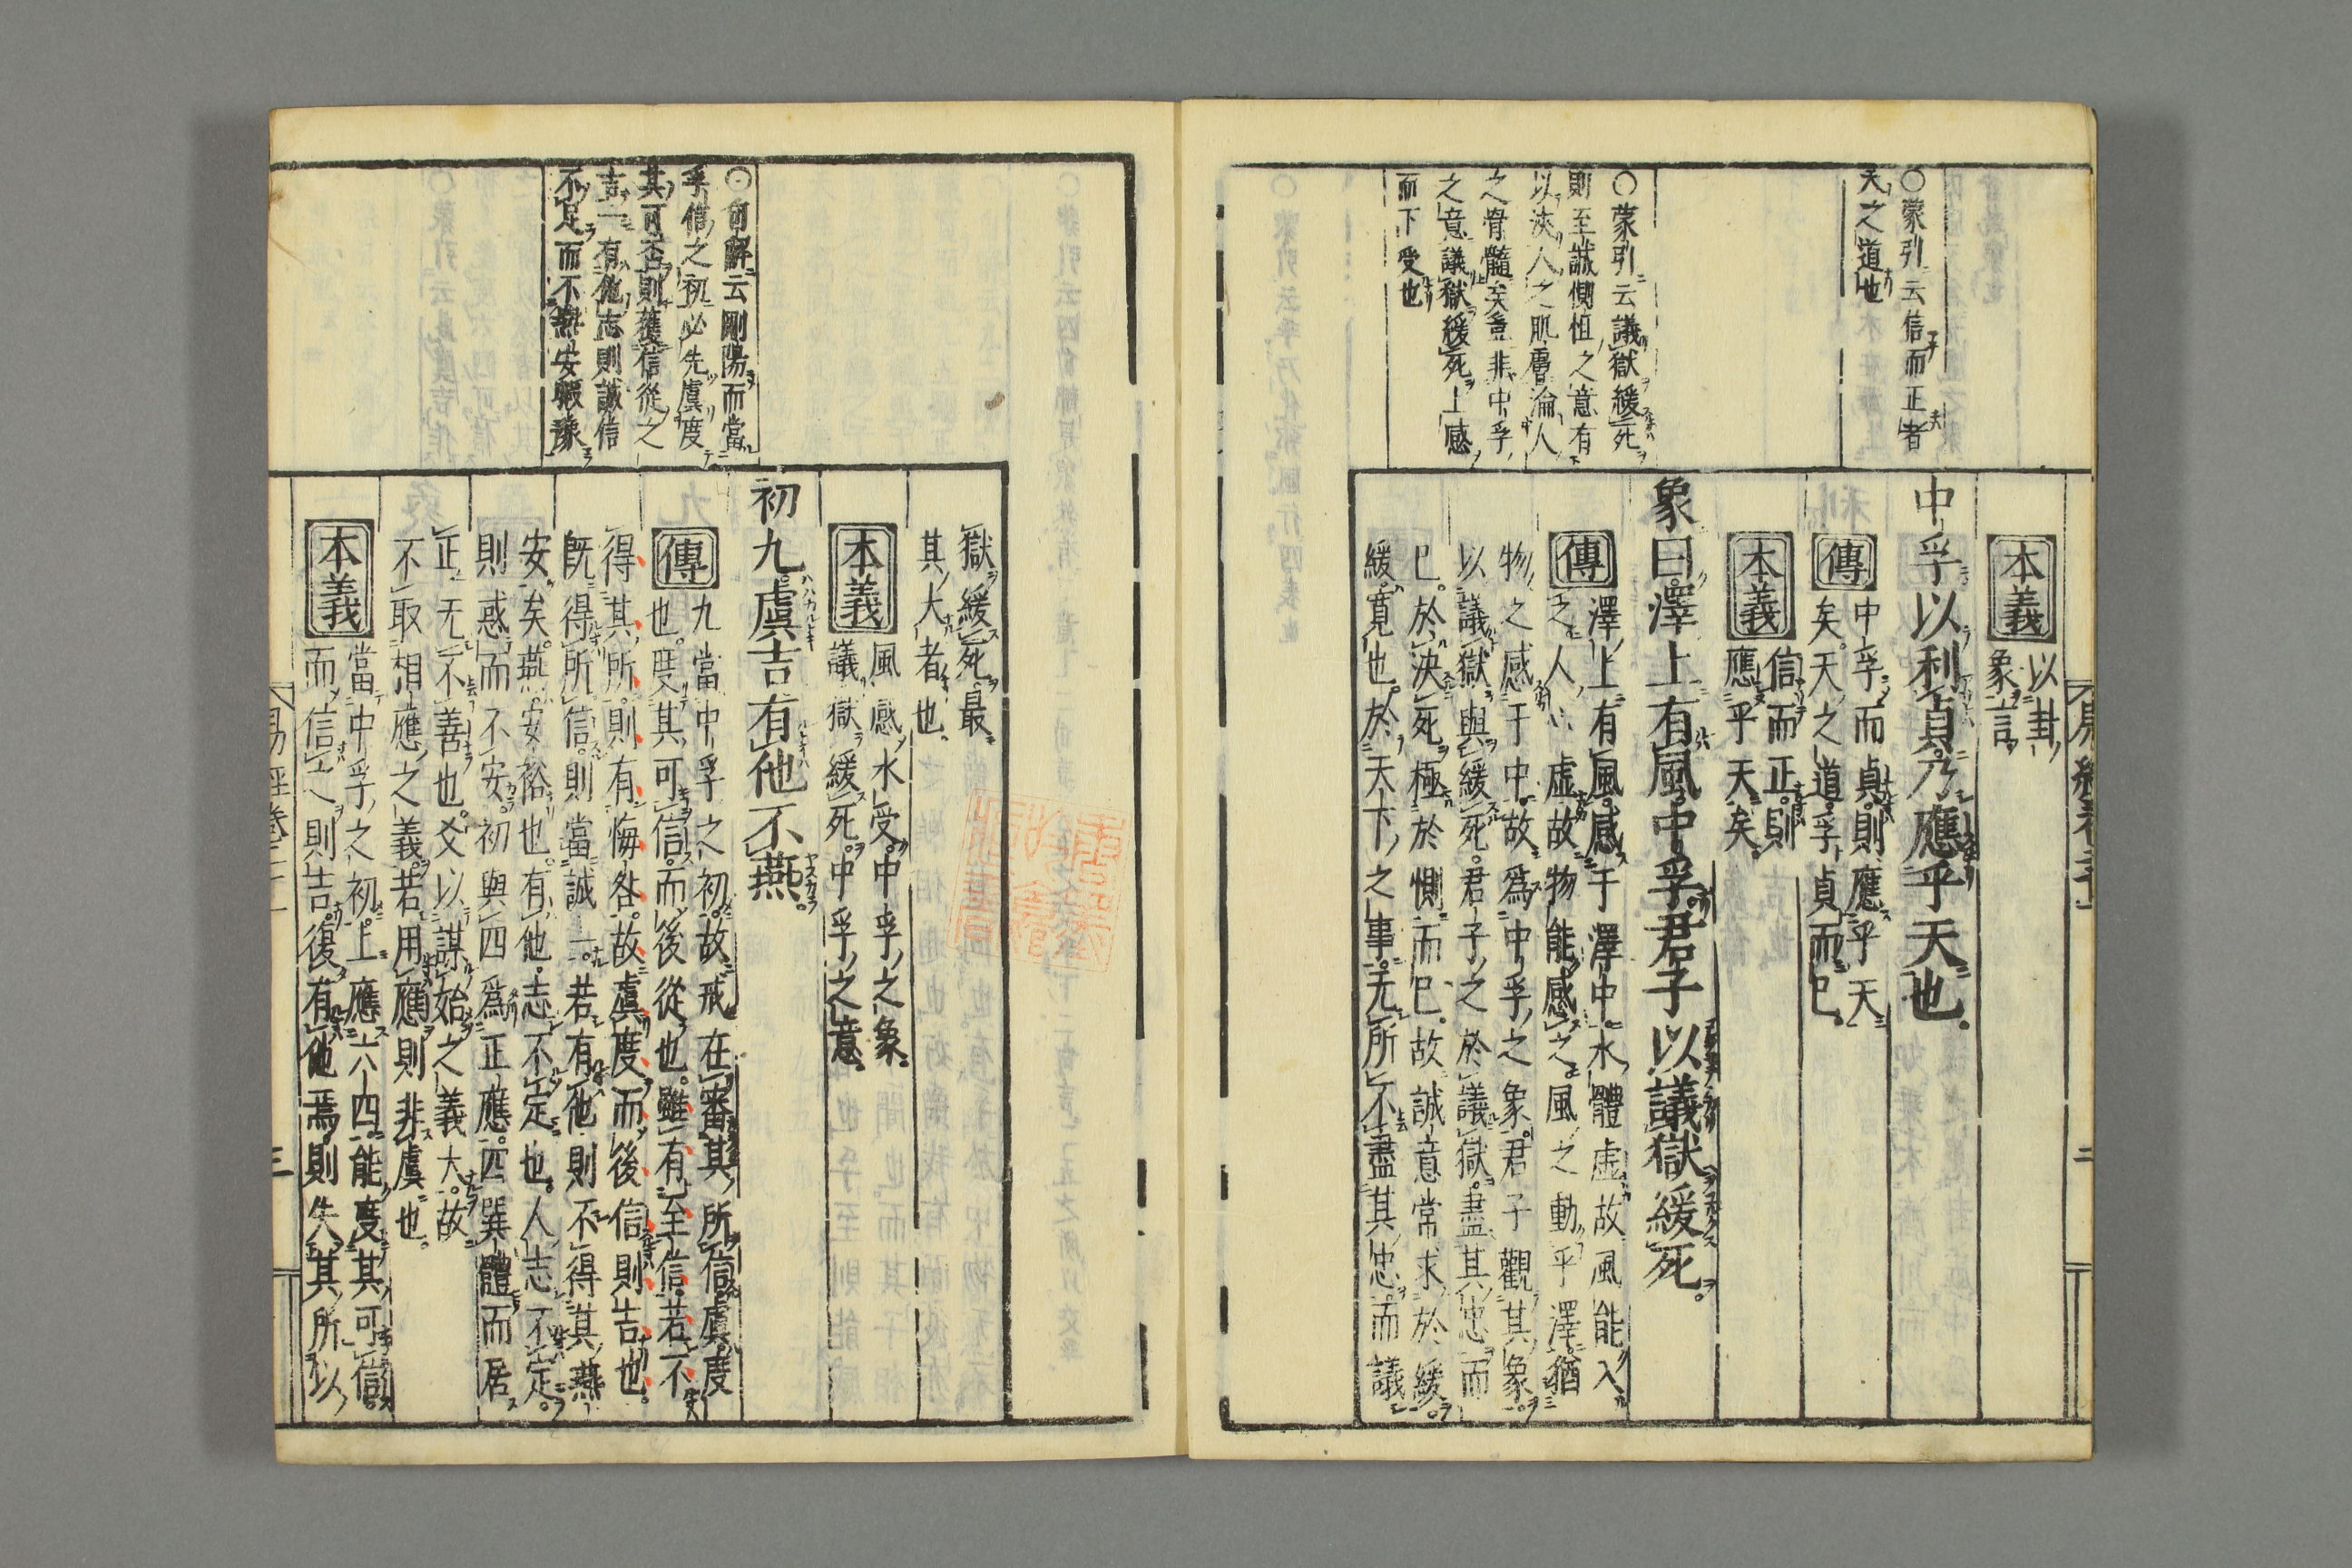 本義以卦
象言
中孚以利貞乃應乎天也
傳中孚而貞則應乎天
矣天之道孚貞而已
本義信而正則
應乎天矣
象曰澤上有風中孚君子以議獄緩死
傳澤上有風感于澤中水體虛故風能入
之人心虛故物能感之風之動乎澤猶
物之感于中故爲中孚之象君子觀其象
以議獄與緩死君子之於議獄盡其忠而
已於決死極於惻而已故誠意常求於緩
緩寬也於天下之事无所不盡其忠而議
○蒙引云信而正者
天之道也
○蒙引云議獄緩死
則至誠惻怛之意有
以浹人之肌膚淪人
之骨髓矣豈非中孚
之意議獄緩死上感
而下受也
獄緩死最
其大者也
本義風感水受中孚之象
議獄緩死中孚之意
初九虞吉有他不燕
傳九當中孚之初故戒在審其所信虞度
也度其可信而後從也雖有至信若不
得其所則有悔咎故虞度而後信則吉也
既得所信則當誠一若有他則不得其燕
安矣燕安裕也有他志不定也人志不定
則惑而不安初與四爲正應四巽體而居
正无不善也爻以謀始之義大故
不取相應之義若用應則非虞也
本義當中孚之初上應六四能度其可信
而信之則吉復有他焉則失其所以
云剛陽而當
孚信之初必先虞度
其可否則獲信從之
吉一有他志則誠信
不足而不無安暇豫
易經卷二十一
三